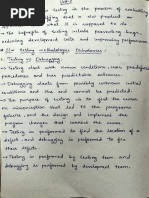 Unit-I
testing is the practice of evaluating
and verifying that a s/w product or
application does what it is supposed to do.
→ The benefits of testing include preventing bugs,
reducing development costs and improving performance
* S/w testing methodologies Dichotomies :-
1. Testing vs Debugging :-
→ Testing starts with known conditions, uses predefined
procedures and has predictable outcomes.
→ Debugging starts from possibly unknown initial
conditions and the end cannot be predicted
→ The purpose of testing is to find the error
or misconception that led to the program's
failure and to design and implement the
program changes that correct the error.
→ Testing is performed to find the location of a
defect and debugging is performed to fix
these defects.
→ Testing is performed by testing team and
debugging is performed by development team.